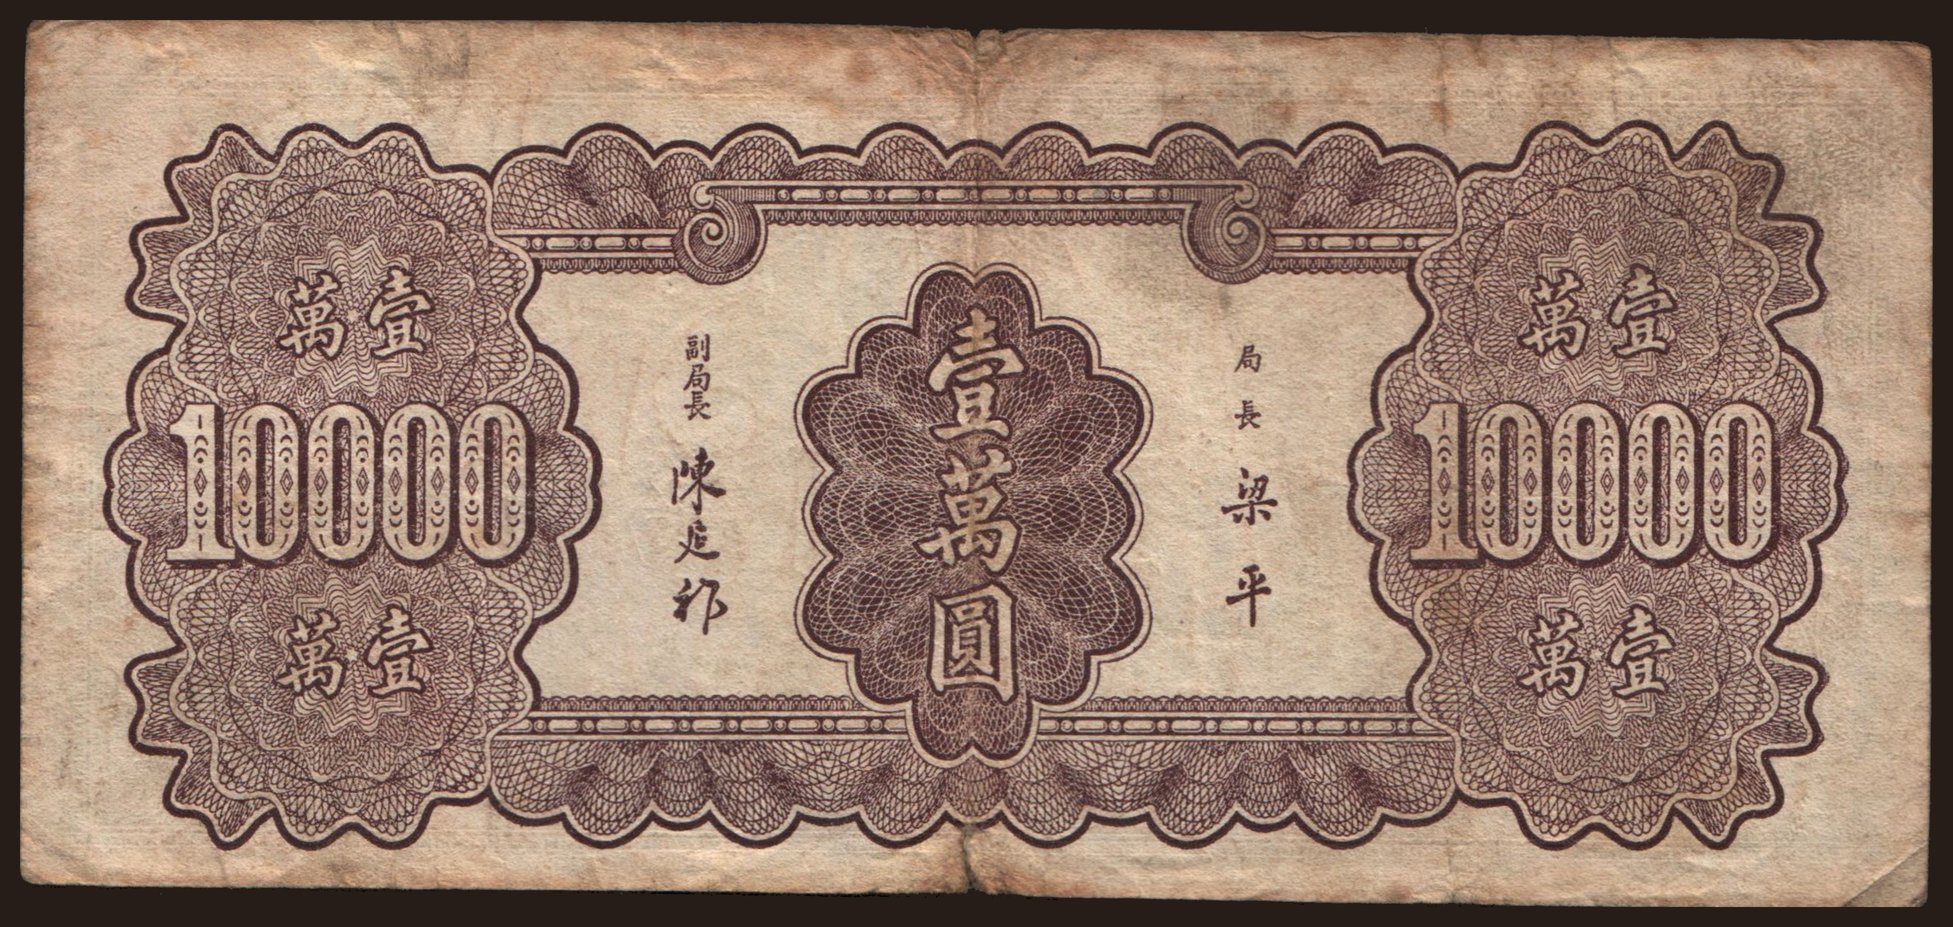 壹萬
10000
壹萬
副局長 陳延祚
壹萬圓
局長 梁平
壹萬
10000
壹萬